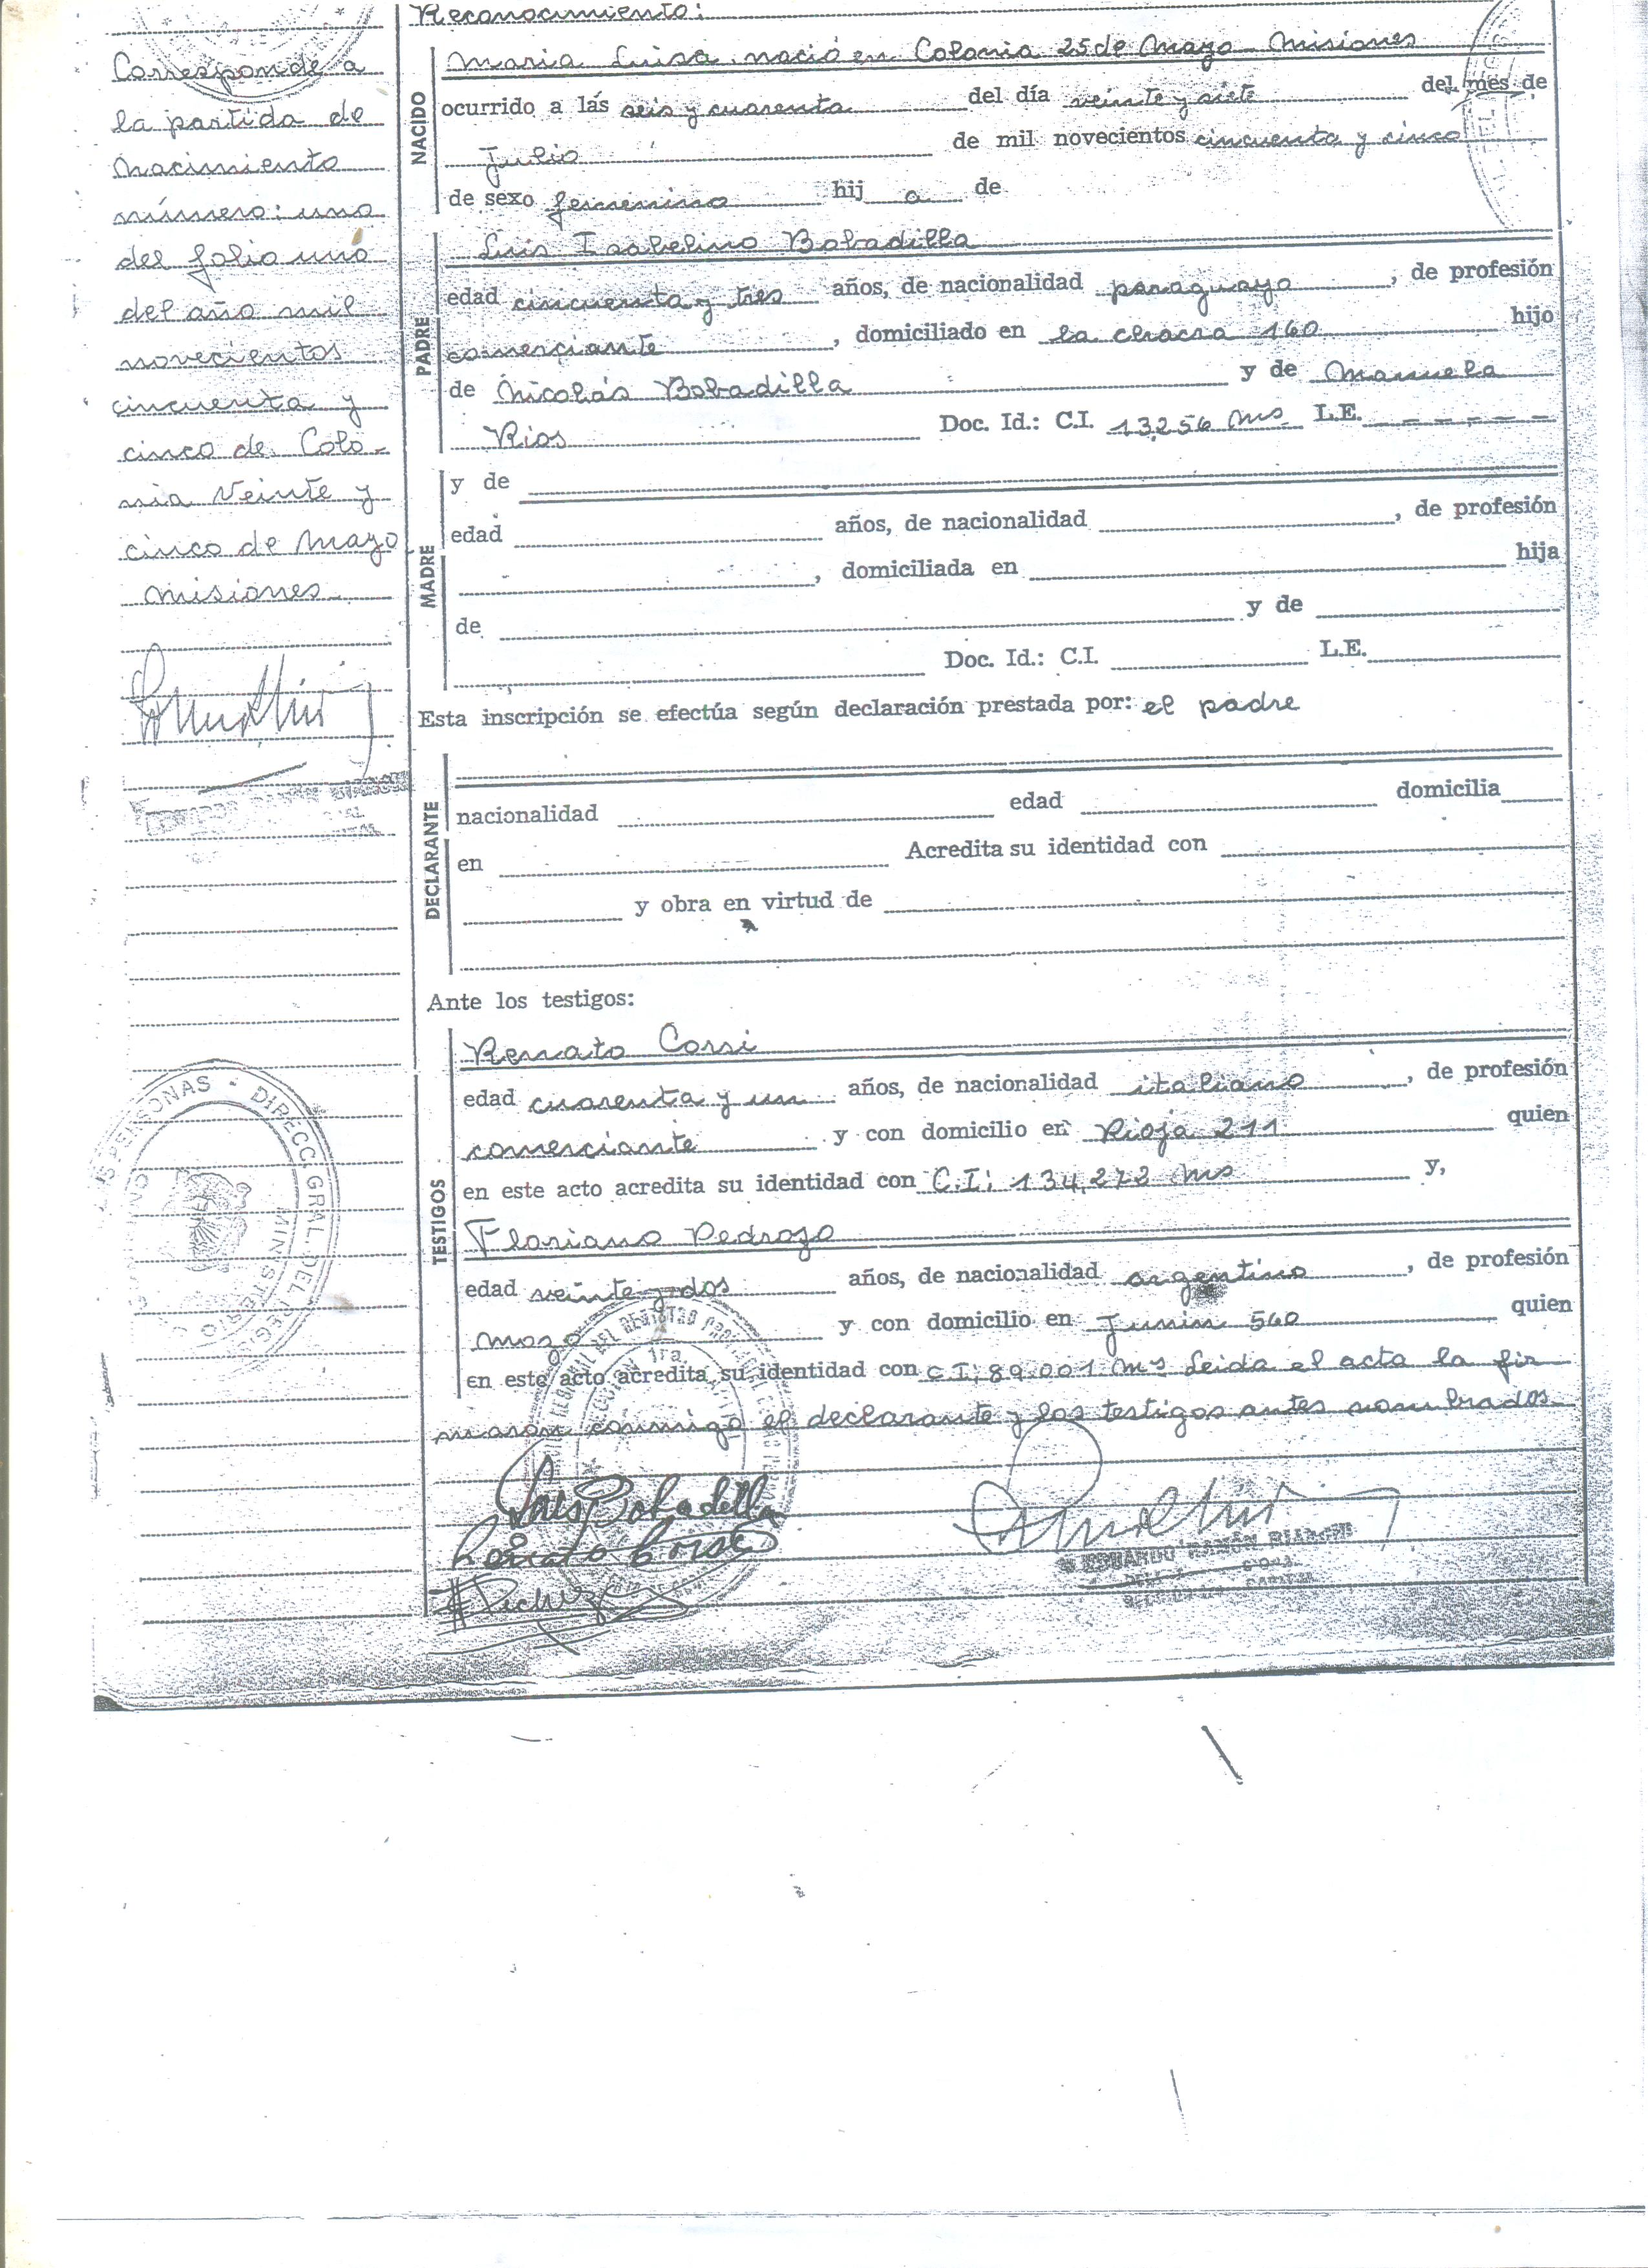 Reconocimiento:
Corresponde a
la partida de
Nacimiento
número: uno
del folio uno
del año mil
novecientos
cincuenta y
cinco de Colo-
nia Veinte y
cinco de Mayo
Misiones
NACIDO
Maria Luisa nació en Colonia 25 de Mayo Misiones
ocurrido a las seis y cuarenta del día veinte y siete del mes de
Julio de mil novecientos cincuenta y cinco
de sexo femenino hij a de
PADRE
Luis Isabelino Bobadilla
edad cincuenta y tres años, de nacionalidad paraguayo, de profesión
comerciante, domiciliado en la chacra 160 hijo
de Nicolás Bobadilla y de Manuela
Rios Doc. Id.: C.I. 13,256 Ms L.E. - - - - -
MADRE
y de
edad años, de nacionalidad , de profesión
, domiciliada en hija
de y de
Doc. Id.: C.I. L.E.
Esta inscripción se efectúa según declaración prestada por: el padre
DECLARANTE
nacionalidad edad domicilia
en Acredita su identidad con
y obra en virtud de
Ante los testigos:
TESTIGOS
Renato Corsi
edad cuarenta y un años, de nacionalidad italiano, de profesión
comerciante y con domicilio en Rioja 211 quien
en este acto acredita su identidad con C.I: 134,272 Ms y,
Floriano Pedrozo
edad veinte y dos años, de nacionalidad argentino, de profesión
mozo y con domicilio en Junin 560 quien
en este acto acredita su identidad con C.I: 89.001 Ms Leida el acto la fir
maron conmigo el declarante y los testigos antes nombrados
Luis Bobadilla
Renato Corsi
PERSONAS · DIRECC. GRAL. DEL REGIS
MINISTERIO
RAMÓN BIANCHI